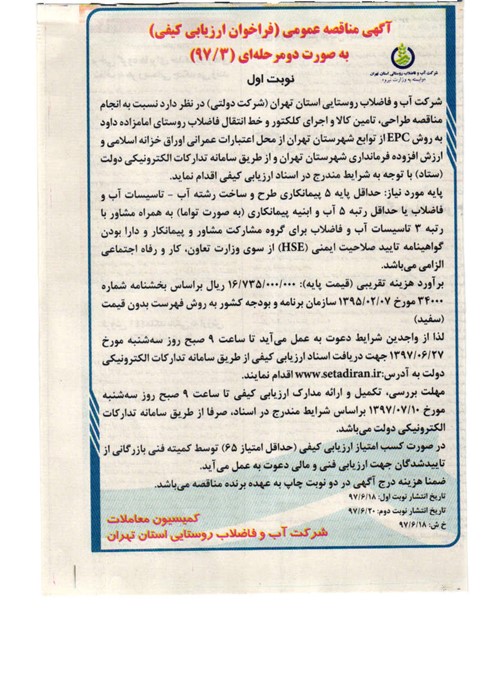 آگهی مناقصه عمومی (فراخوان ارزیابی کیفی)
به صورت دومرحله‌ای (۹۷/۳)
شرکت آب و فاضلاب روستایی استان تهران
وابسته به وزارت نیرو
نوبت اول
شرکت آب و فاضلاب روستایی استان تهران (شرکت دولتی) در نظر دارد نسبت به انجام
مناقصه طراحی، تامین کالا و اجرای کلکتور و خط انتقال فاضلاب روستای امامزاده داود
به روش EPC از توابع شهرستان تهران از محل اعتبارات عمرانی اوراق خزانه اسلامی و
ارزش افزوده فرمانداری شهرستان تهران و از طریق سامانه تدارکات الکترونیکی دولت
(ستاد) با توجه به شرایط مندرج در اسناد ارزیابی کیفی اقدام نماید.
پایه مورد نیاز: حداقل پایه ۵ پیمانکاری طرح و ساخت رشته آب - تاسیسات آب و
فاضلاب یا حداقل رتبه ۵ آب و ابنیه پیمانکاری (به صورت تواما) به همراه مشاور با
رتبه ۳ تاسیسات آب و فاضلاب برای گروه مشارکت مشاور و پیمانکار و دارا بودن
گواهینامه تایید صلاحیت ایمنی (HSE) از سوی وزارت تعاون، کار و رفاه اجتماعی
الزامی می‌باشد.
برآورد هزینه تقریبی (قیمت پایه): ۱۶/۷۳۵/۰۰۰/۰۰۰ ریال براساس بخشنامه شماره
۳۴۰۰۰ مورخ ۱۳۹۵/۰۲/۰۷ سازمان برنامه و بودجه کشور به روش فهرست بدون قیمت
(سفید)
لذا از واجدین شرایط دعوت به عمل می‌آید تا ساعت ۹ صبح روز سه‌شنبه مورخ
۱۳۹۷/۰۶/۲۷ جهت دریافت اسناد ارزیابی کیفی از طریق سامانه تدارکات الکترونیکی
دولت به آدرس: www.setadiran.ir اقدام نمایند.
مهلت بررسی، تکمیل و ارائه مدارک ارزیابی کیفی تا ساعت ۹ صبح روز سه‌شنبه
مورخ ۱۳۹۷/۰۷/۱۰ براساس شرایط مندرج در اسناد، صرفا از طریق سامانه تدارکات
الکترونیکی دولت می‌باشد.
در صورت کسب امتیاز ارزیابی کیفی (حداقل امتیاز ۶۵) توسط کمیته فنی بازرگانی از
تاییدشدگان جهت ارزیابی فنی و مالی دعوت به عمل می‌آید.
ضمنا هزینه درج آگهی در دو نوبت چاپ به عهده برنده مناقصه می‌باشد.
تاریخ انتشار نوبت اول: ۹۷/۶/۱۸
تاریخ انتشار نوبت دوم: ۹۷/۶/۲۰
خ ش: ۹۷/۶/۱۸
کمیسیون معاملات
شرکت آب و فاضلاب روستایی استان تهران